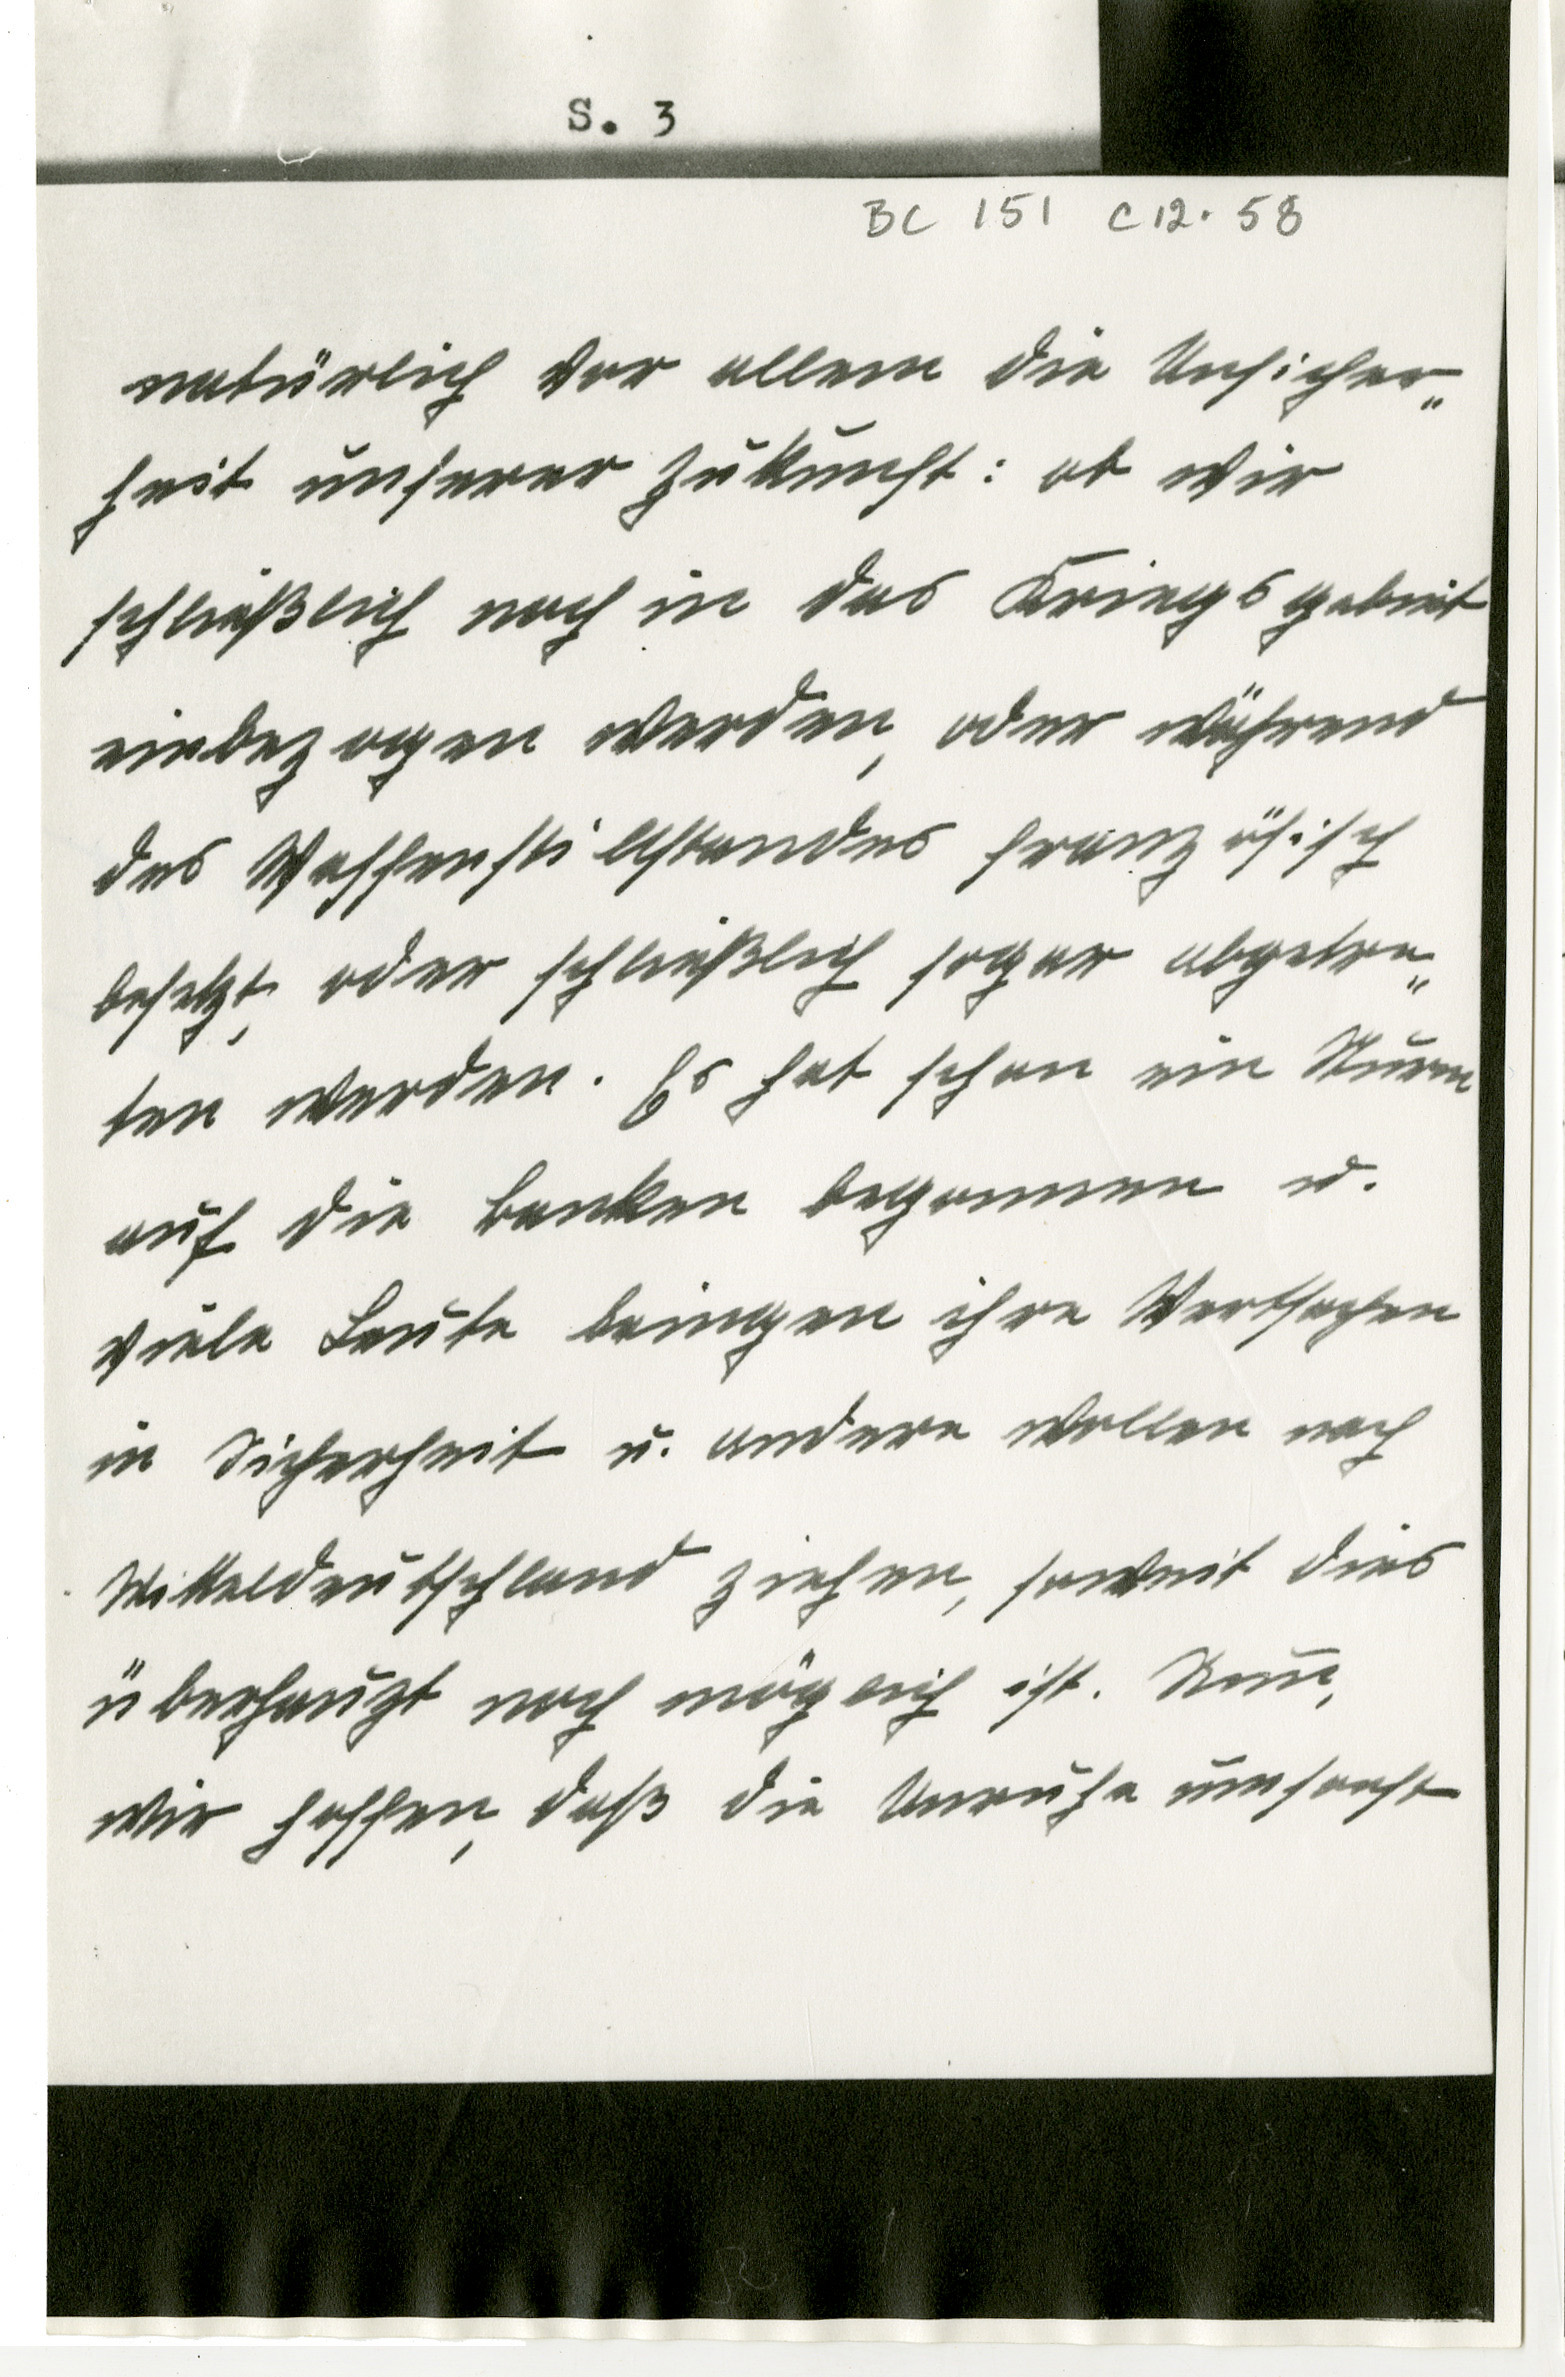 S. 3
BC 151 C12.58
natürlich vor allem die Unsicher„
heit unserer Zukunft: ob wir
schließlich noch in das Kriegsgebiet
einbezogen werden, oder während
des Waffenstillstandes französisch
besetzt, oder schließlich sogar abgetre„
ten werden. Es hat schon ein Sturm
auf die Banken begonnen u.
viele Leute bringen ihre Wertsachen
in Sicherheit u. andere wollen nach
Mitteldeutschland ziehen, soweit dies
überhaupt noch möglich ist. Nun,
wir hoffen, daß die Unruhe umsonst